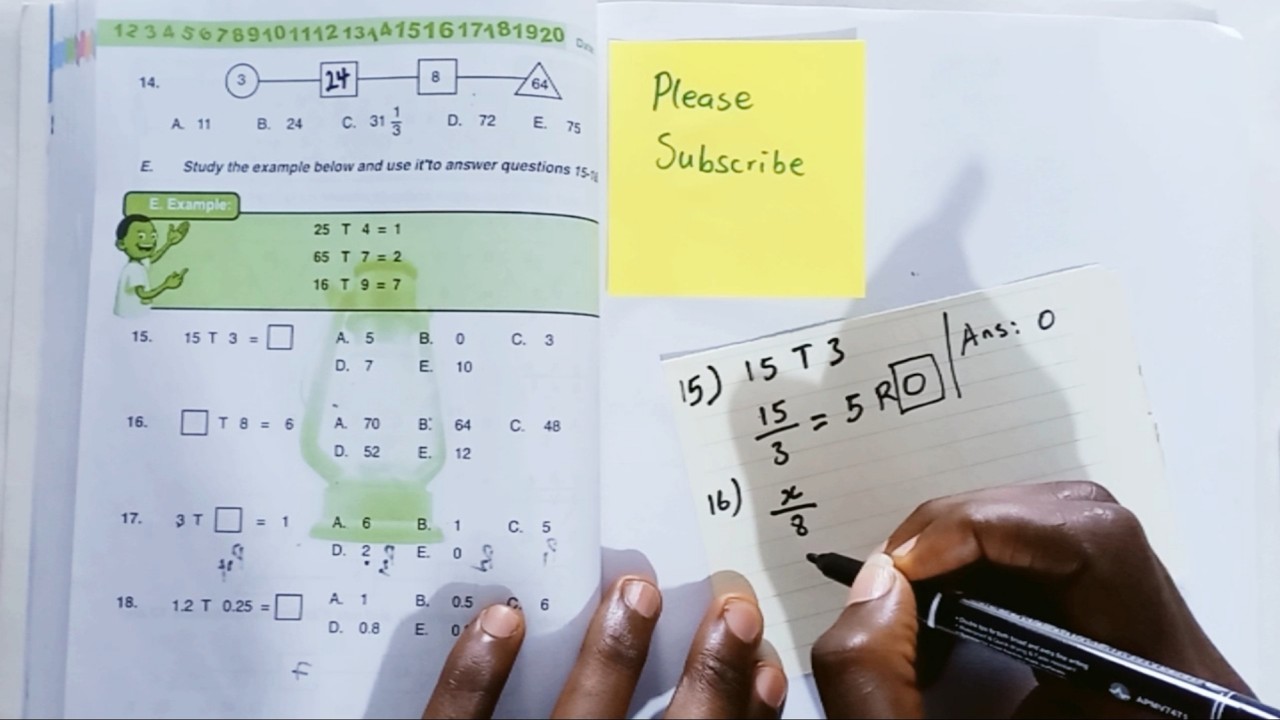 1 2 3 4 5 6 7 8 9 10 11 12 13 14 15 16 17 18 19 20
14. 3 24 8 64
A. 11 B. 24 C. 31 1/3 D. 72 E. 75
E. Study the example below and use it to answer questions 15-18
E. Example:
25 T 4 = 1
65 T 7 = 2
16 T 9 = 7
15. 15 T 3 = □ A. 5 B. 0 C. 3
D. 7 E. 10
16. □ T 8 = 6 A. 70 B. 64 C. 48
D. 52 E. 12
17. 3 T □ = 1 A. 6 B. 1 C. 5
D. 2 E. 0
18. 1.2 T 0.25 = □ A. 1 B. 0.5 C. 6
D. 0.8 E.
Please
Subscribe
15) 15 T 3
15/3 = 5 R 0 | Ans: 0
16) x/8